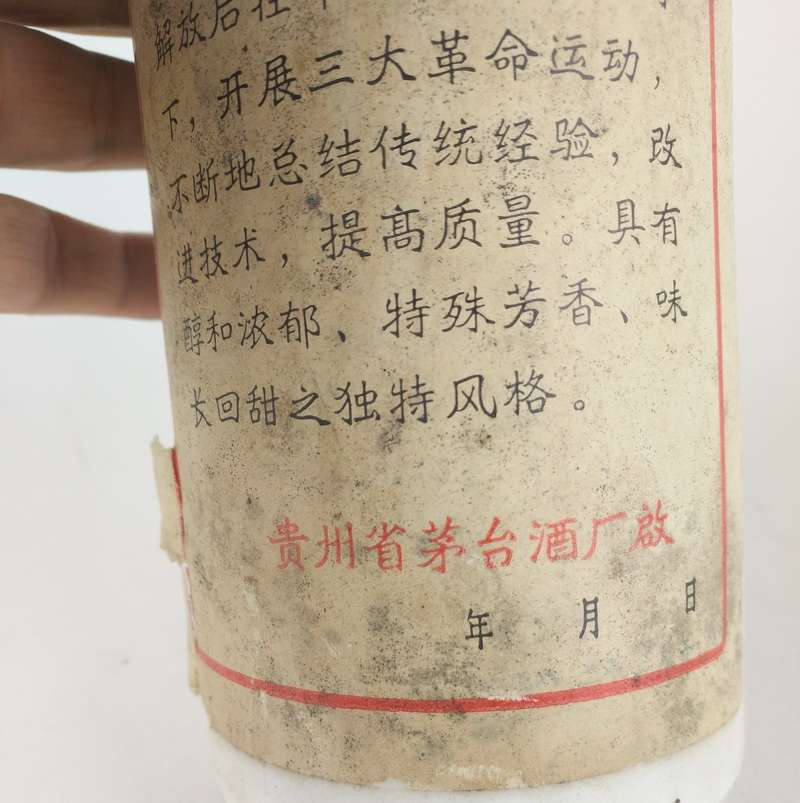 解放后在
下，开展三大革命运动，
不断地总结传统经验，改
进技术，提高质量。具有
醇和浓郁、特殊芳香、味
长回甜之独特风格。
贵州省茅台酒厂啟
年 月 日